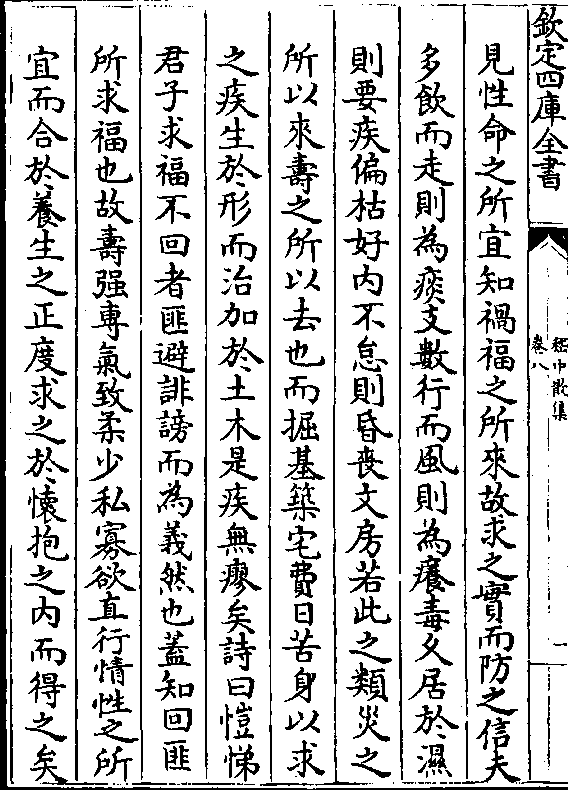 欽定四庫全書
嵇中散集
卷八
一
見性命之所宜知禍福之所來故求之實而防之信夫
多飲而走則為痰支數行而風則為癢毒久居於濕
則要疾偏枯好内不怠則昏喪文房若此之類災之
所以來壽之所以去也而掘基築宅費日苦身以求
之疾生於形而治加於土木是疾無瘳矣詩曰愷悌
君子求福不回者匪避誹謗而為義然也蓋知回匪
所求福也故壽强專氣致柔少私寡欲直行情性之所
宜而合於養生之正度求之於懷抱之内而得之矣